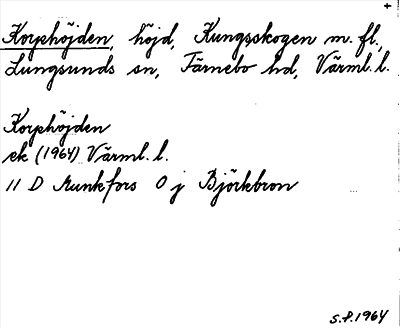 Korphöjden, höjd, Kungsskogen m. fl.,
Lungsunds sn, Färnebo hd, Värml. l.
Korphöjden
ek (1964) Värml. l.
11 D Munkfors O j Björkbron
S.P. 1964